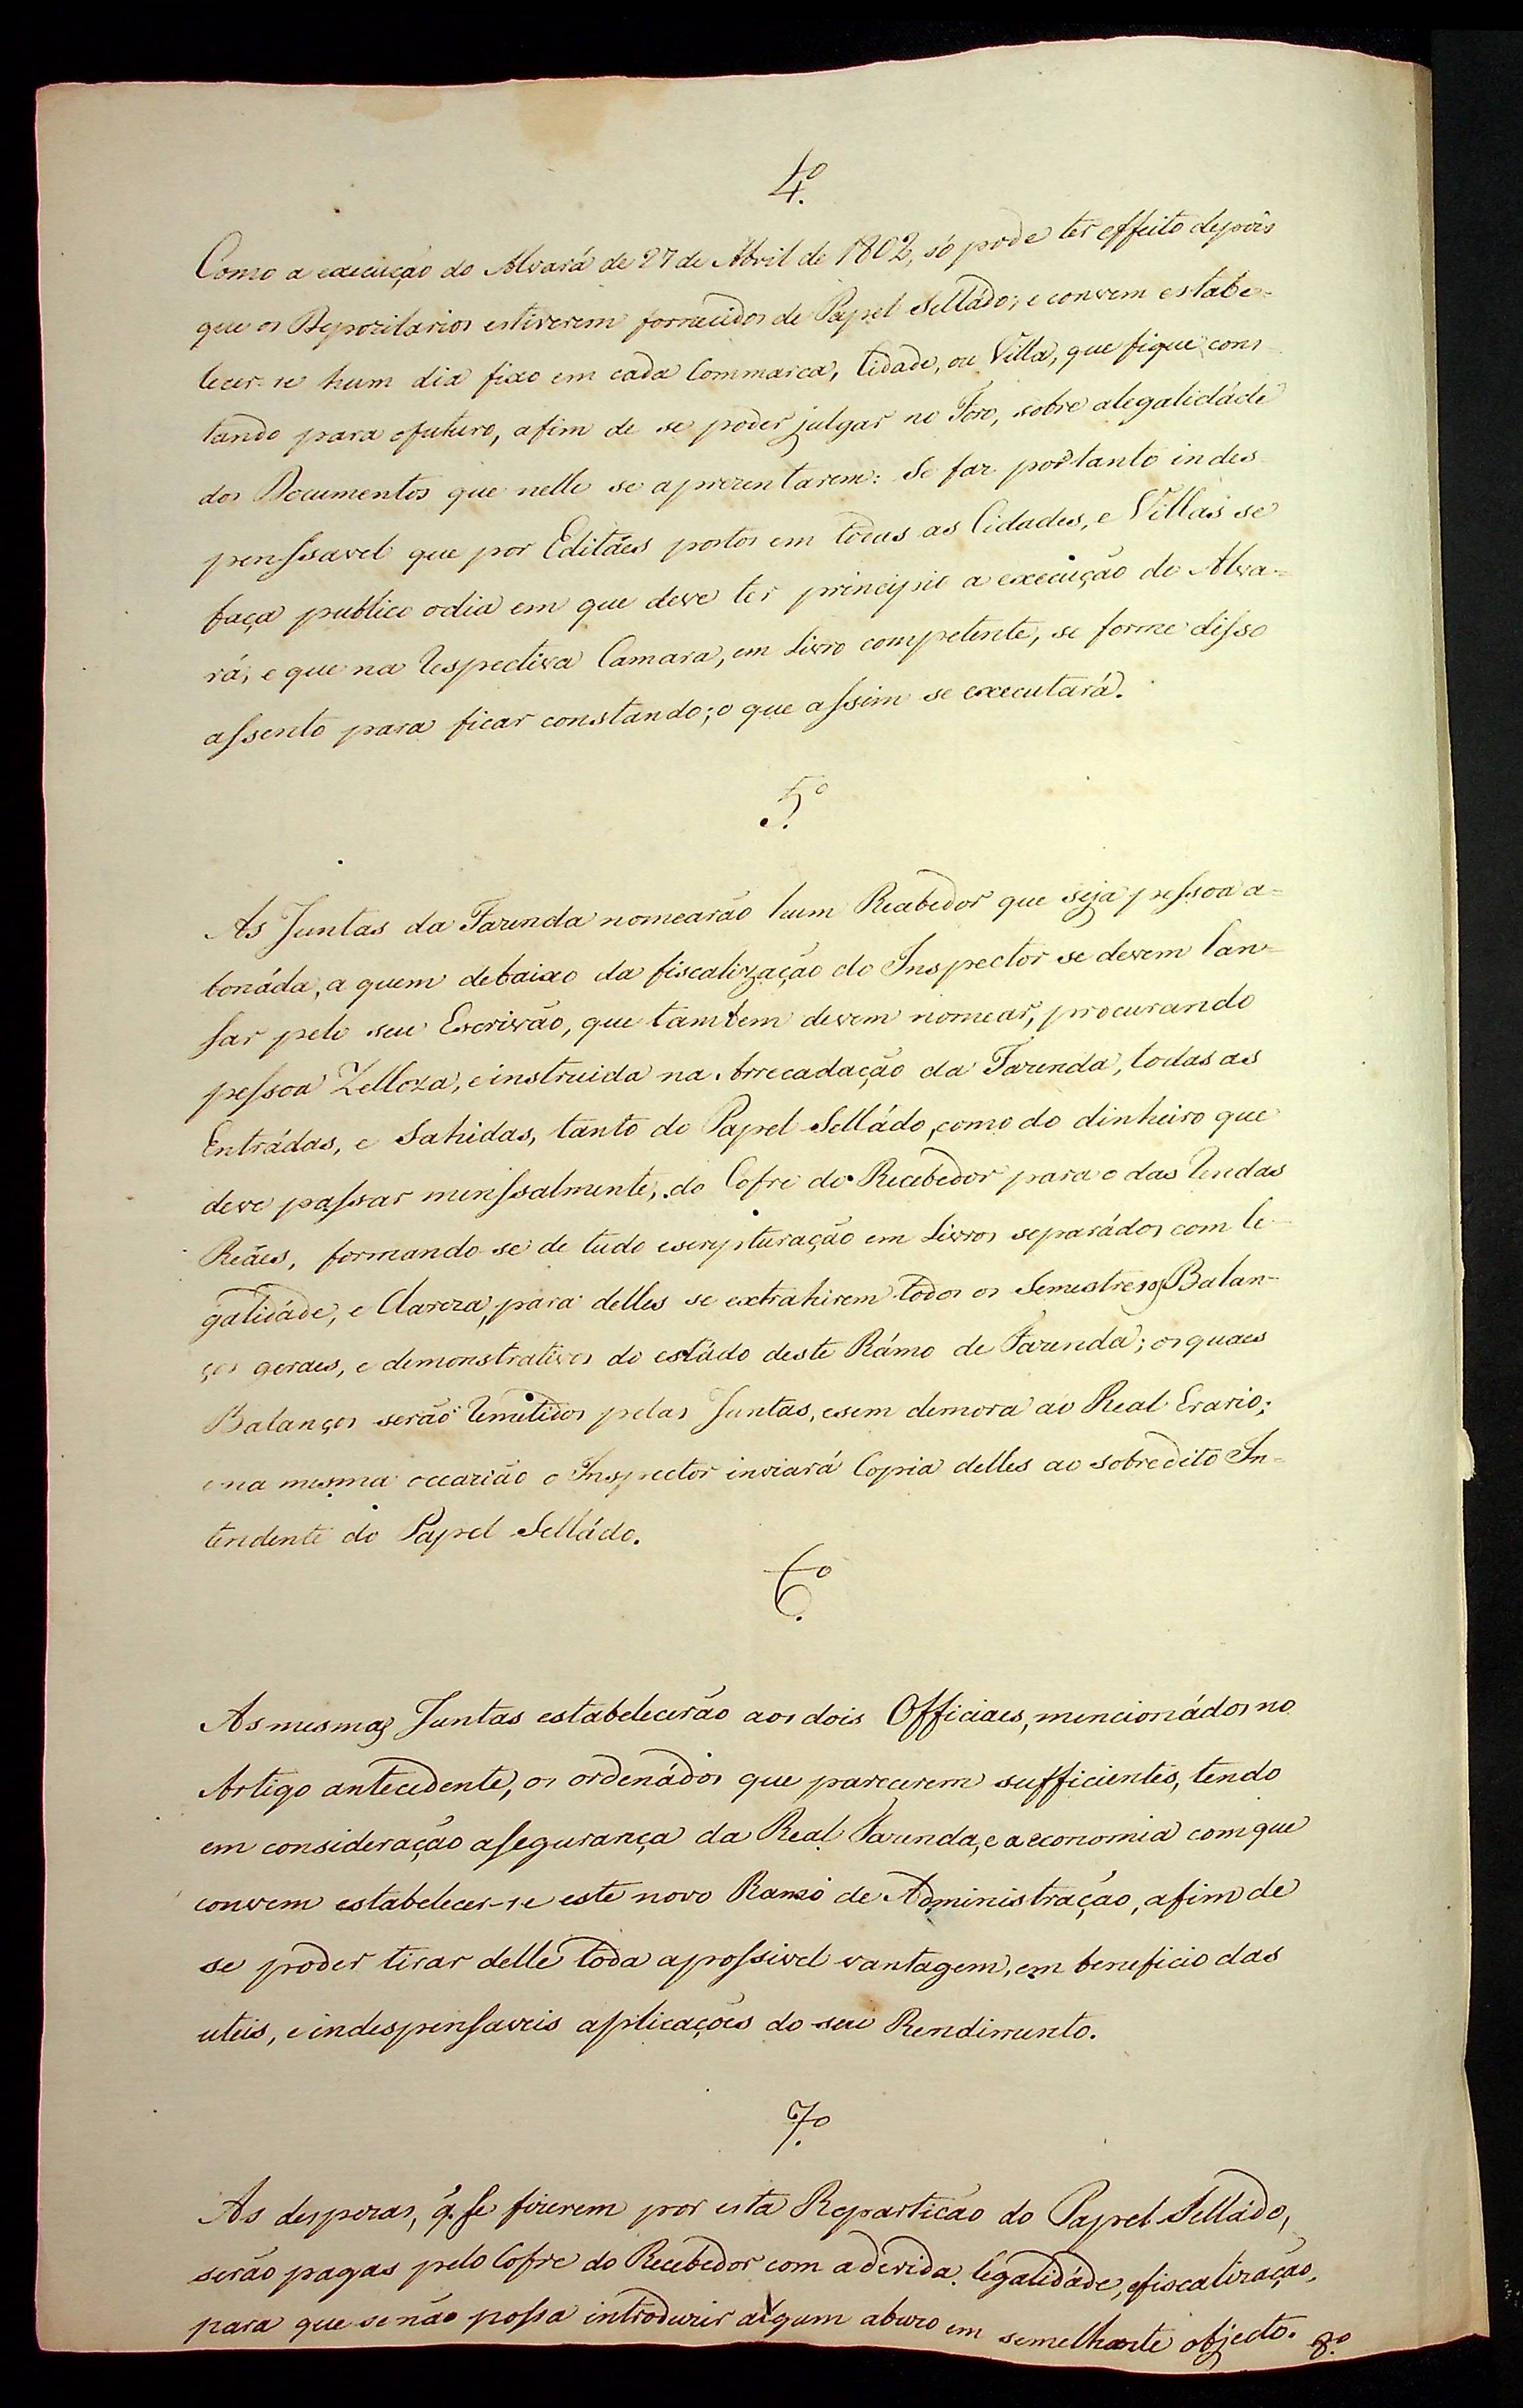 4.º
Como a execução do Alvará de 27 de Abril de 1802, só pode ter effeito depois
que os Depozitarios estiverem fornecidos de Papel Selládo; e convem estabe-
lecer-se hum dia fixo em cada Commarca, Cidade, ou Villa, que fique cons-
tando para ofuturo, afim de se poder julgar no Foro, sobre alegalidáde
dos Documentos que nelle se aprezentarem: Se faz portanto indes-
penssavel que por Editáes postos em todas as Cidades, e Villas se
faça publico odia em que deve ter principio a execução do Alva-
rá; e que na Respectiva Camara, em Livro competente, se forme disso
assento para ficar constando; o que assim se executará.
5.º
As Juntas da Fazenda nomearão hum Recebedor que seja pessoa a-
bonáda, a quem debaixo da fiscalização do Inspector se devem lan-
sar pelo seu Escrivão, que tambem devem nomear, procurando
pessoa Zelloza, e instruida na Arrecadação da Fazenda, todas as
Entrádas, e Sahidas, tanto do Papel Selládo, como do dinheiro que
deve passar menssalmente, do Cofre do Recebedor para o das Rendas
Reáes, formando-se de tudo escripturação em Livros separádos com le-
galidáde, e Clareza, para delles se extrahirem todos os Semestres os Balan-
ços geraes, e demonstrativos do estádo deste Rámo de Fazenda; os quaes
Balanços serão Remetidos pelas Juntas, e sem demora ao Real Erario;
e na mesma occazião o Inspector inviará Copia delles ao sobredito In-
tendente do Papel Selládo.
6.º
As mesmas Juntas estabelecerão aos dois Officiaes, mencionádos no
Artigo antecedente, os ordenádos que parecerem sufficientes, tendo
em consideração asegurança da Real Fazenda, e a economia com que
convem estabelecer-se este novo Ramo de Administração, afim de
se poder tirar delle toda apossivel vantagem, em beneficio das
uteis, e indespensaveis aplicações do seu Rendimento.
7.º
As despezas, q. se fizerem por esta Repartição do Papel Selládo,
serão pagas pelo Cofre do Recebedor com adevida legalidáde, efiscalização,
para que se não possa introduzir algum abuzo em semelhante objecto. 8.º